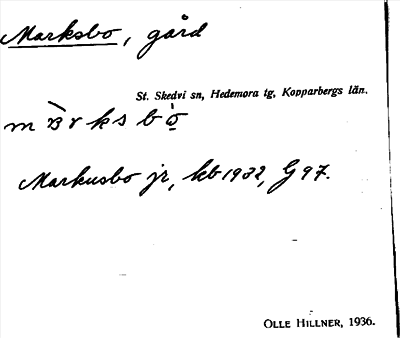 Marksbo, gård
St. Skedvi sn, Hedemora tg, Kopparbergs län.
Markusbo jr, kb 1932, G 97.
OLLE HILLNER, 1936.